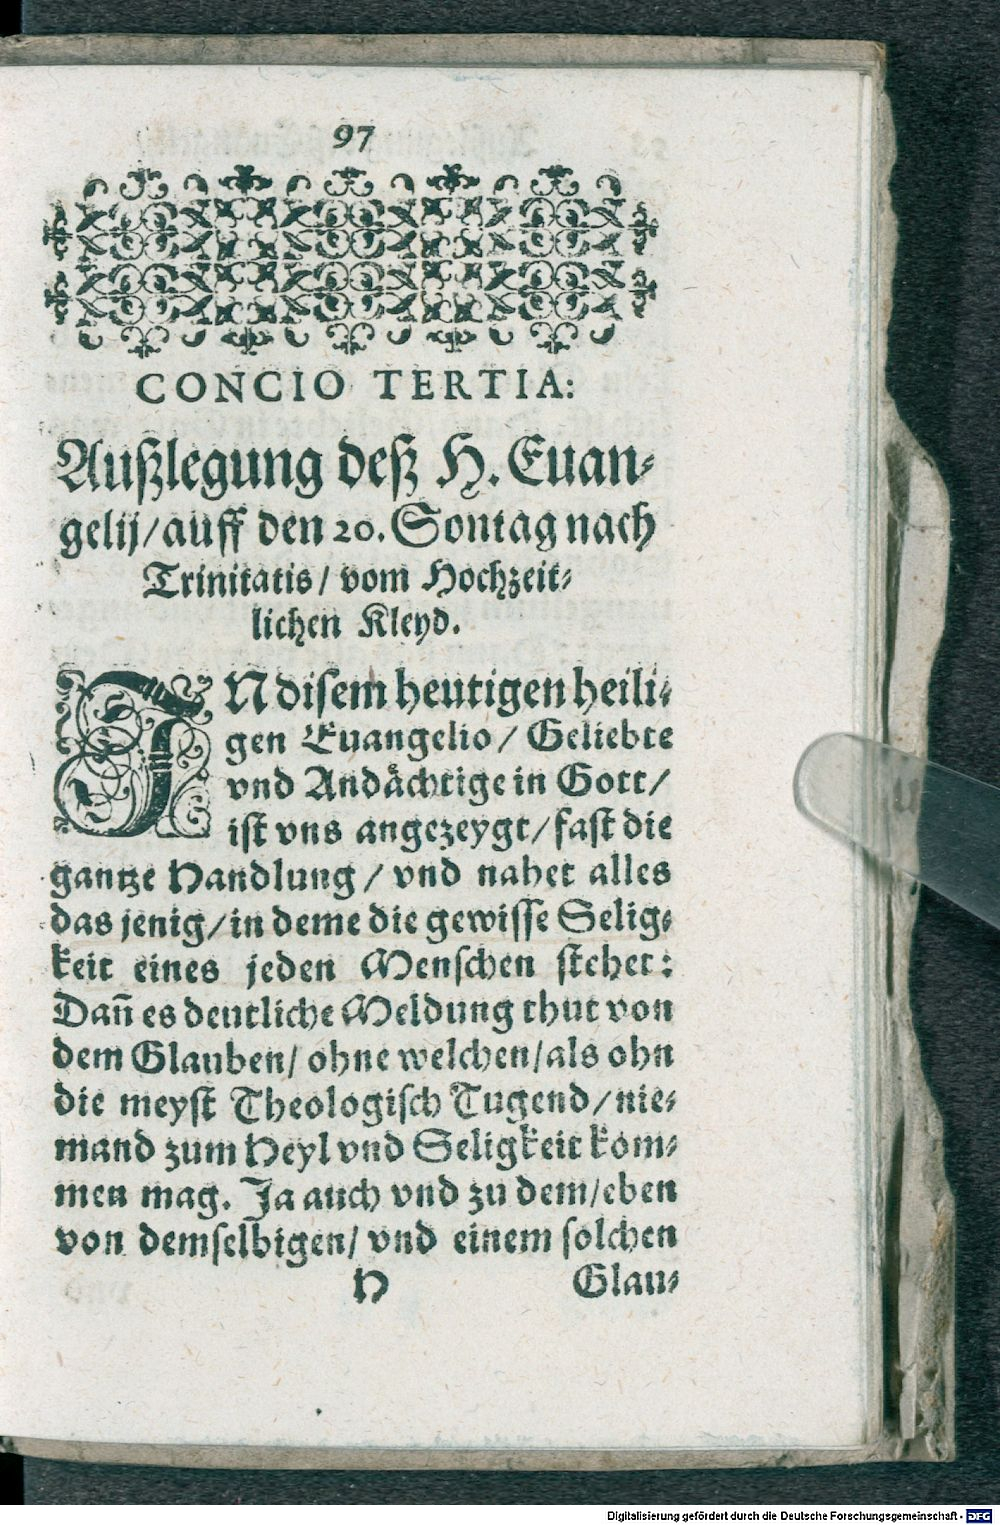 97
CONCIO TERTIA:
Außlegung deß H. Euan-
gelij/auff den 20. Sontag nach
Trinitatis/ vom Hochzeit-
lichen Kleyd.
IN disem heutigen heili-
gen Euangelio/ Geliebte
vnd Andåchtige in Gott/
ist vns angezeygt/ fast die
gantze Handlung/ vnd nahet alles
das jenig/ in deme die gewisse Selig-
keit eines jeden Menschen stehet:
Dañ es deutliche Meldung thut von
dem Glauben/ ohne welchen/als ohn
die meyst Theologisch Tugend/ nie-
mand zum Heyl vnd Seligkeit kom-
men mag. Ja auch vnd zu dem/eben
von demselbigen/ vnd einem solchen
H Glau-
Digitalisierung gefördert durch die Deutsche Forschungsgemeinschaft - DFG